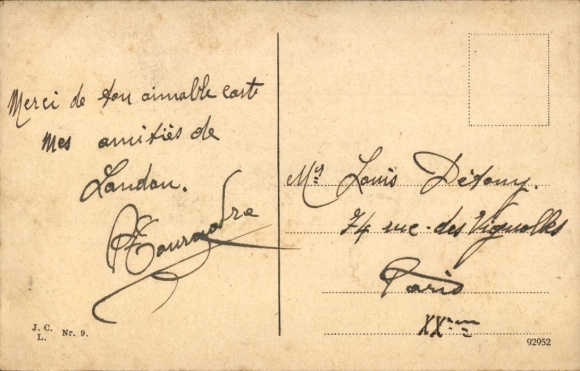 Merci de ton aimable carte
Mes amitiés de
Landau.
Mr Louis Détouy.
74 rue des Vignolles
Paris
XXème
J. C.
L.
Nr. 9.
92952